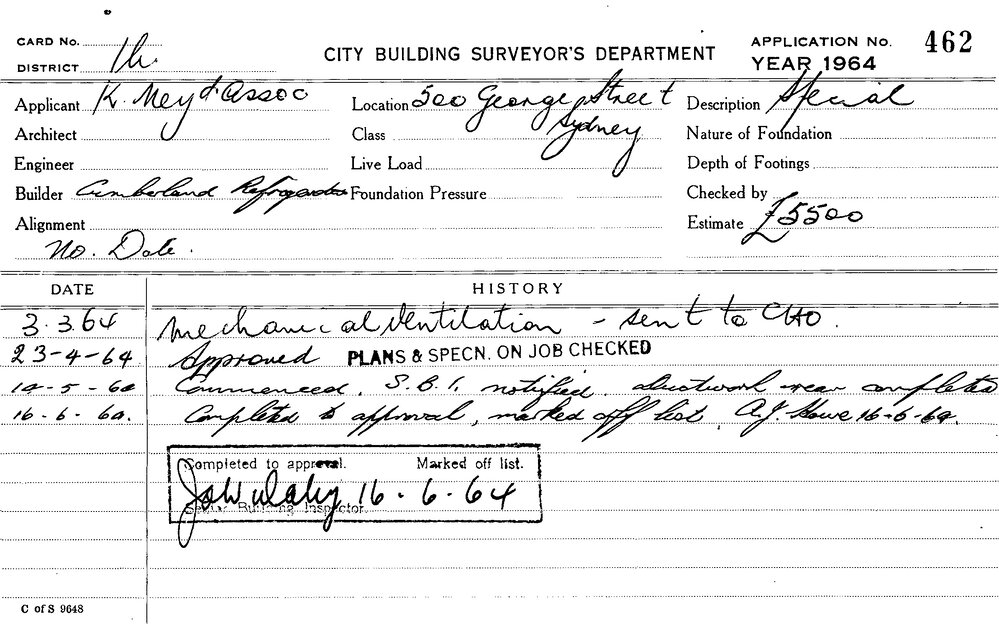 CARD No.
CITY BUILDING SURVEYOR'S DEPARTMENT
APPLICATION No. 462
DISTRICT 1h.
YEAR 1964
Applicant K. Mey & Assoc
Location 500 George Street
Sydney
Description Special
Architect
Class
Nature of Foundation
Engineer
Live Load
Depth of Footings
Builder Cumberland
Foundation Pressure
Checked by
Alignment
Estimate £5500
No. Date.
DATE
HISTORY
3.3.64 Mechanical Ventilation - sent to CHO.
23-4-64 Approved PLANS & SPECN. ON JOB CHECKED
14-5-64 Commenced, S.B.I. notified. ductwork near completed
16-6-64. Completed to approval, marked off list. A.J. Howe 16-6-64.
Completed to approval. Marked off list.
16-6-64
Senior Building Inspector.
C of S 9648